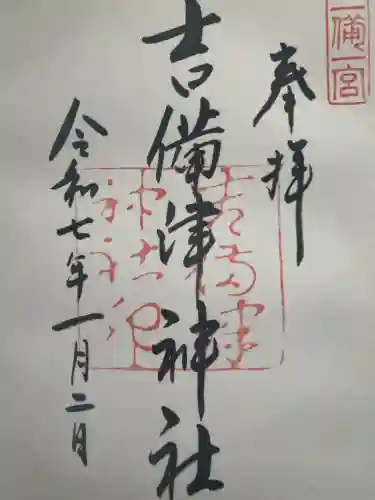 一備一宮
奉拝
吉備津神社
令和七年一月二日